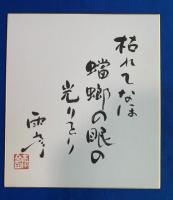 枯れてなほ
蟷螂の眼の
光りをり